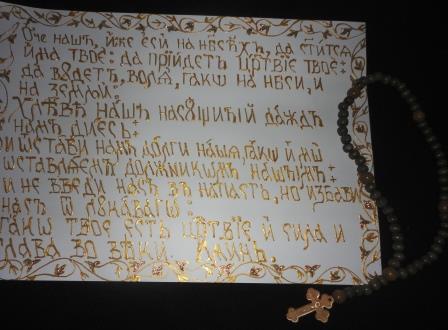 Ѻче нашъ, иже еси на нбсѣхъ, да ст҃итсѧ
имѧ твое: да прїидетъ црⷭ҇твїе твое:
да бꙋдетъ волѧ, гакѡ на нб҃си, и
на земли:
Хлѣбъ нашъ насꙋщный даждь
намъ днесь:
и ѡстави намъ долги нашѧ, гакѡ и мы
ѡставлѧемъ должникѡмъ нашымъ:
и не введи насъ въ напасть, но избави
насъ ѿ лꙋкавагѡ:
гакѡ твое есть црⷭ҇твїе и сила и
слава во вѣки. Аминь.